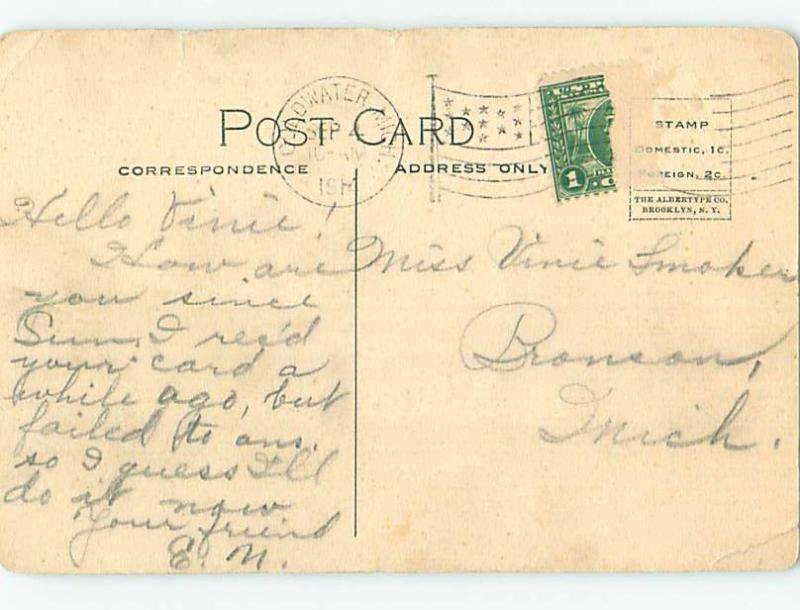 POST CARD
CORRESPONDENCE
ADDRESS ONLY
COLDWATER, MICH.
SEP 4
191
1
STAMP
DOMESTIC, 1C.
FOREIGN, 2C.
THE ALBERTYPE CO.
BROOKLYN, N. Y.
Hello Vinie!
How are
you since
Sun. I rec'd
your card a
while ago, but
failed to ans.
so I guess I'll
do it now
Your friend
E. N.
Miss Vinie Smoker
Bronson,
Mich.